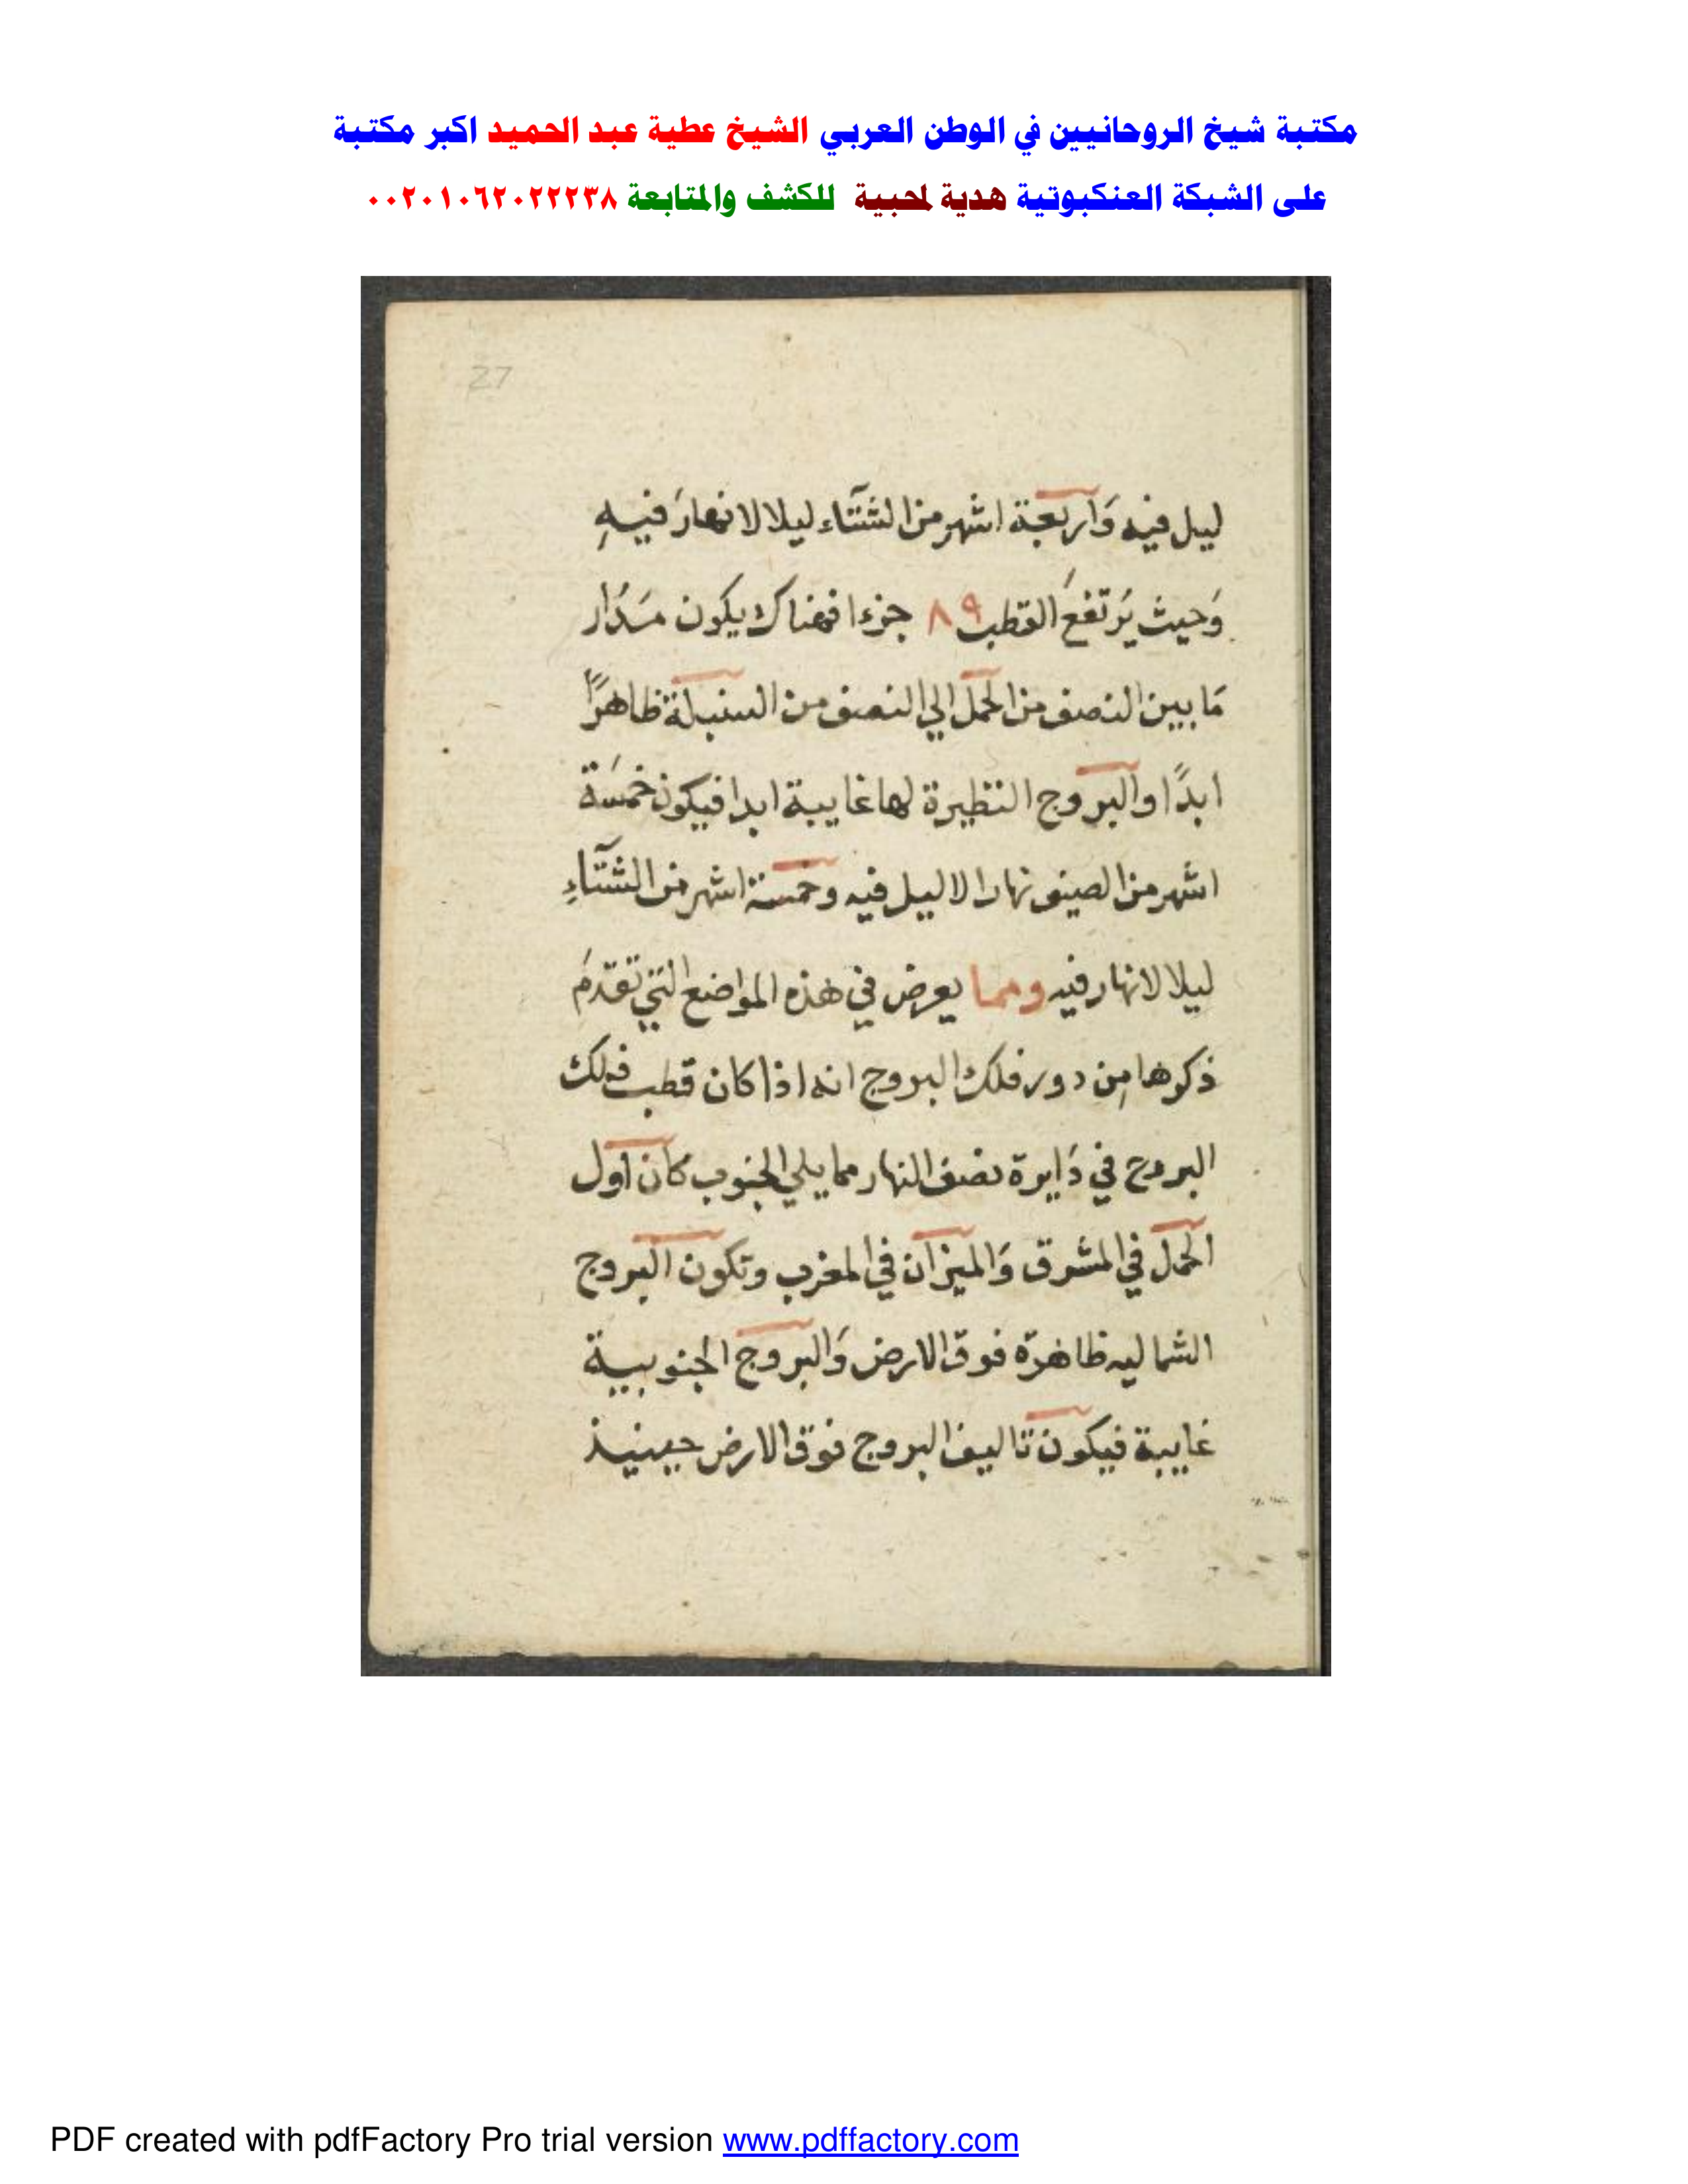 مكتبة شيخ الروحانيين في الوطن العربي الشيخ عطية عبد الحميد اكبر مكتبة
على الشبكة العنكبوتية هدية لمحبية للكشف والمتابعة ٠٠٢٠١٠٦٢٠٢٢٢٣٨
27
ليل فيه وَاربعة اشهر من الشتَآء ليلا لا نهارَ فيهِ
وَحيث يَرتفعَ القطب ٨٩ جزءا فهناك يكون مَدَار
مَا بين النصف من الحمل الي النصف من السنبلة ظاهرًا
ابدًا والبروج النظيرة لها غايبة ابدا فيكون خمسَة
اشهر من الصيف نهارا لا ليل فيه وخمسة اشهر من الشتَآءِ
ليلا لا نهار فيه ومما يعرض في هذه المواضع التي تقدمَ
ذكرها مِن دور فلك البروج انه اذا كان قطب فلك
البروج في دَايرة نصف النهار مما يلي الجنوب كان اول
الحمل في المشرق وَالميزان في المغرب وتكون البروج
الشماليه ظاهرة فوق الارض وَالبروج الجنوبية
غايبة فيكون تاليف البروج فوق الارض حينيذ
PDF created with pdfFactory Pro trial version www.pdffactory.com